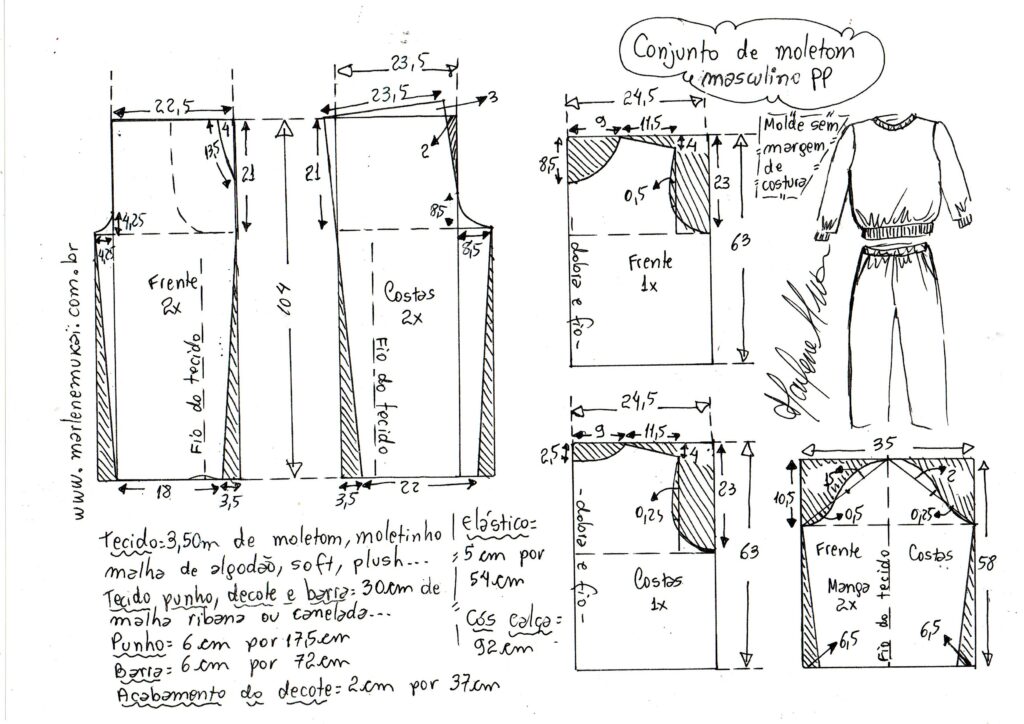 Conjunto de moletom
masculino PP
Molde sem
margem
de
costura
www.marlenemukai.com.br
22,5
4
13,5
21
4,25
4,25
Frente
2x
Fio do tecido
18
3,5
104
23,5
23,5
3
2
21
8,5
8,5
Costas
2x
Fio do tecido
3,5
22
24,5
9
11,5
8,5
4
0,5
23
63
Frente
1x
-dobra e fio-
24,5
9
11,5
2,5
4
0,25
23
63
Costas
1x
-dobra e fio-
35
10,5
2
0,5
0,25
58
Frente
Costas
Manga
2x
Fio do tecido
6,5
6,5
Tecido=3,50m de moletom, moletinho
malha de algodão, soft, plush...
Tecido punho, decote e barra=30cm de
malha ribana ou canelada...
Punho=6cm por 17,5cm
Barra=6cm por 72cm
Acabamento do decote=2cm por 37cm
Elástico=
=5cm por
54cm
Cós calça=
92cm